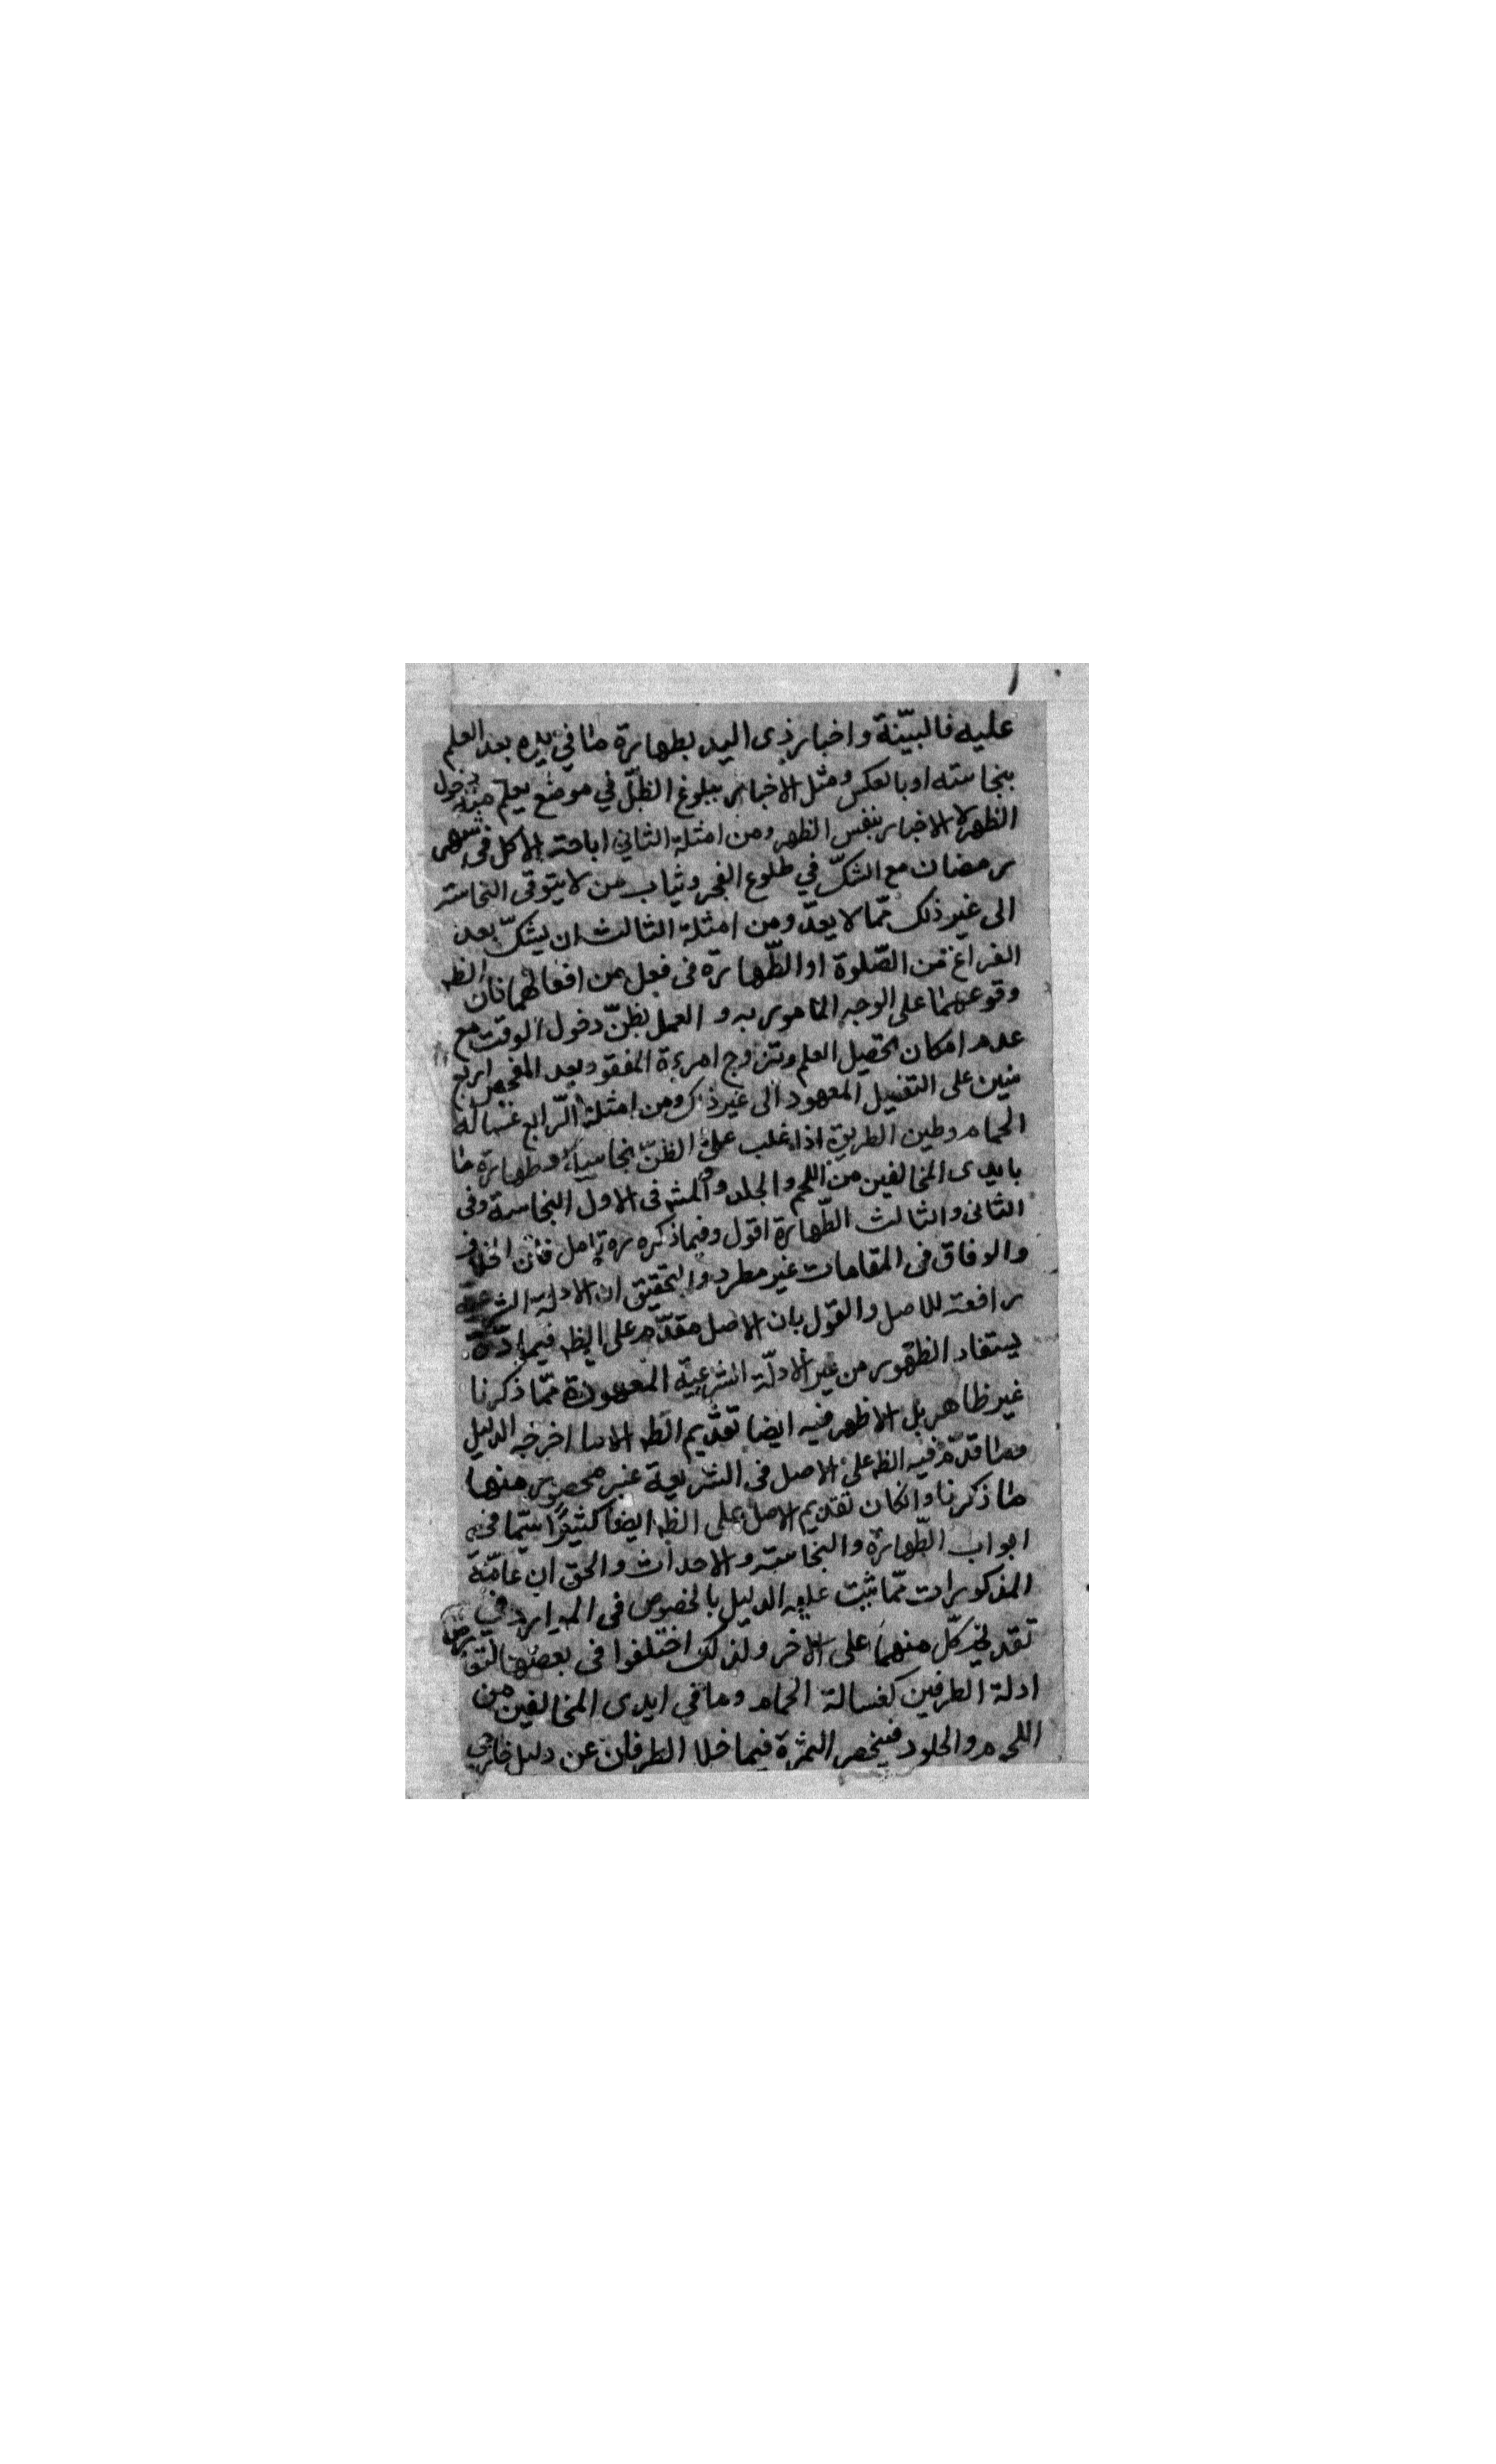 عليه فالبيّنة واخبار ذى اليد بطهارة ما في يده بعد العلم
بنجاسته او بالعكس ومثل الاخبار ببلوغ الظلّ في موضع يعلم منه دخول
الظهر لا الاخبار بنفس الظهر ومن امثلة الثاني اباحة الاكل في شهر
رمضان مع الشكّ في طلوع الفجر وثياب من لا يتوقى النجاسة
الى غير ذلك ممّا لا يعدّ ومن امثلة الثالث ان يشكّ بعد
الفراغ من الصّلوة او الطّهارة فى فعل من افعالهما فان الظ
وقوعهما على الوجه المامور به و العمل بظنّ دخول الوقت مع
عدم امكان تحصيل العلم وتزوج امرءة المفقود بعد الفحص اربع
سنين على التفصيل المعهود الى غير ذلك ومن امثلة الرّابع غسالة
الحمام وطين الطريق اذا غلب على الظنّ نجاسته وطهارة ما
بايدى المخالفين من اللحم والجلد والمش فى الاول النجاسة وفى
الثانى والثالث الطّهارة اقول وفيما ذكره ره تامل فانّ الخلاف
والوفاق فى المقامات غير مطرد والتحقيق ان الادلة الشرعيّة
رافعة للاصل والقول بان الاصل مقدّم على الظ فيما
يستفاد الظهور من غير الادلّة الشرعيّة المعهودة ممّا ذكرنا
غير ظاهر بل الاظهر فيه ايضا تقديم الظ الا ما اخرجه الدليل
فما قدّم فيه الظ على الاصل فى الشريعة غير محصور منها
ما ذكرنا وانكان تقديم الاصل على الظ ايضا كثيرًا سيّما فى
ابواب الطّهارة والنجاسة والاحداث والحق ان عامّة
المذكورات ممّا ثبت عليه الدليل بالخصوص فى الموارد فى
تقديم كلّ منهما على الاخر ولذلك اختلفوا فى بعضها لتعارض
ادلة الطرفين كغسالة الحمام وما في ايدى المخالفين من
اللحوم والجلود فينحصر الثمرة فيما خلا الطرفان عن دليل خارجي